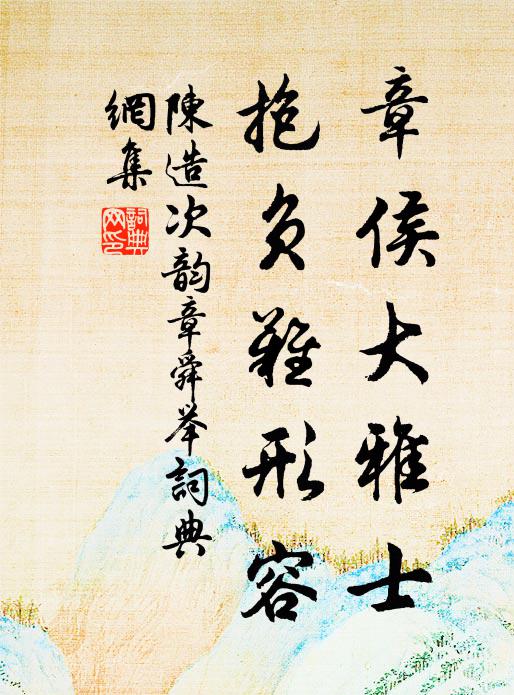 章侯大雅士
抱負難形容
陳造次韵章舜举詞典
網集
詞典網印